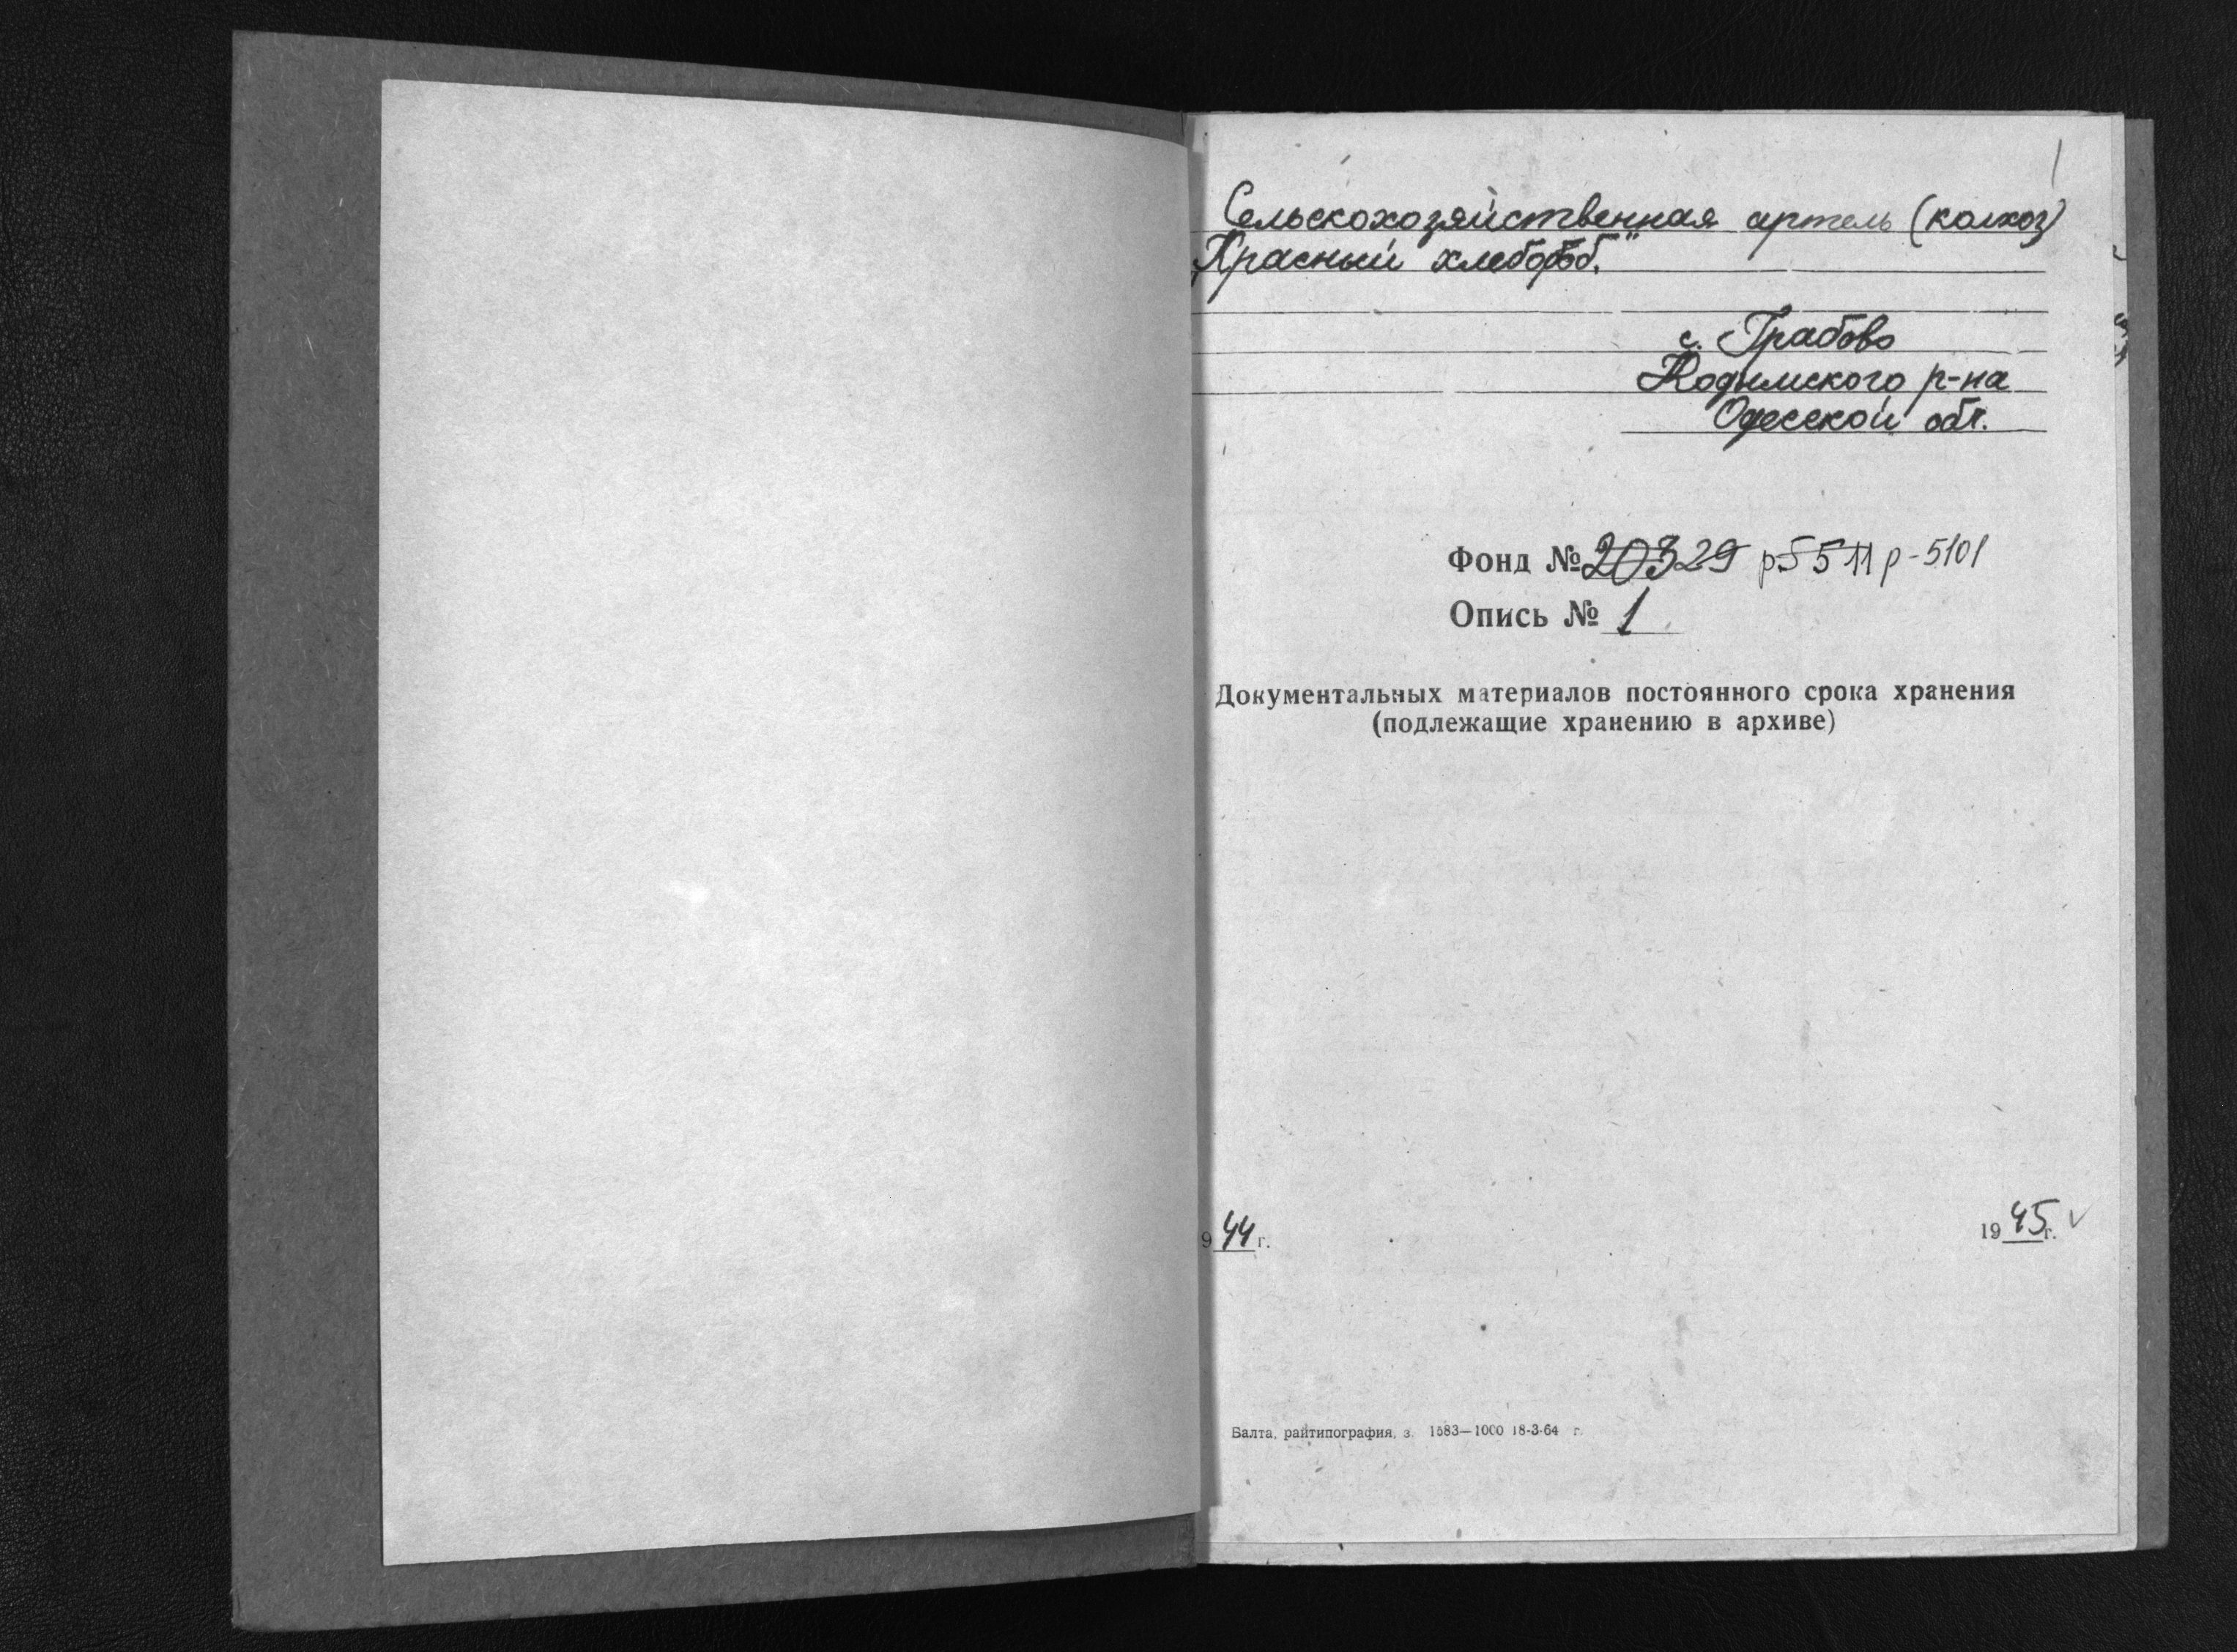 1
Сельскохозяйственная артель (колхоз)
„Красный хлебороб."
с. Грабово
Кодымского р-на
Одесской обл.
Фонд № 20329 р5511 р-5101
Опись № 1
Документальных материалов постоянного срока хранения
(подлежащие хранению в архиве)
944 г. 1945 г.
Балта, райтипография, з. 1583—1000 18-3-64 г.